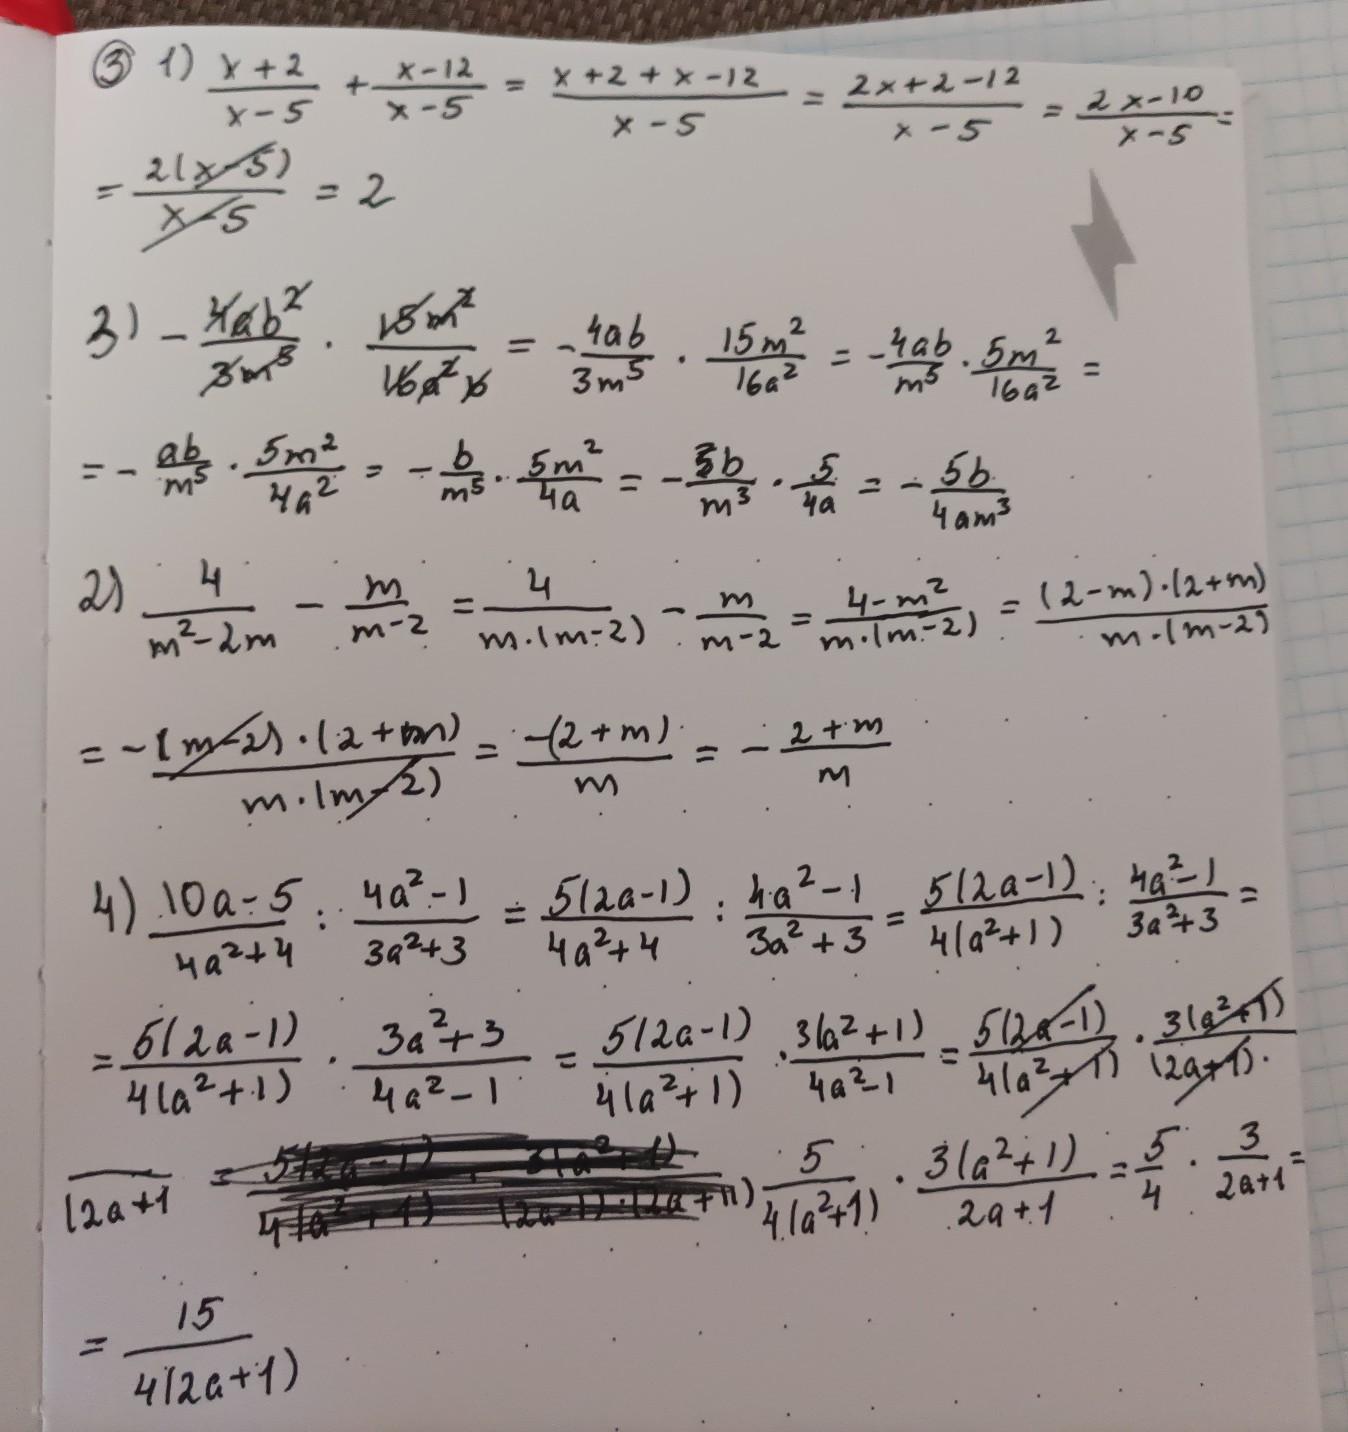 ③ 1) (x+2)/(x-5) + (x-12)/(x-5) = (x+2+x-12)/(x-5) = (2x+2-12)/(x-5) = (2x-10)/(x-5) =
= 2(x-5)/(x-5) = 2
3) - 4ab²/3m⁵ · 15m²/16a²b = - 4ab/3m⁵ · 15m²/16a² = - 4ab/m⁵ · 5m²/16a² =
= - ab/m⁵ · 5m²/4a² = - b/m⁵ · 5m²/4a = - b/m³ · 5/4a = - 5b/4am³
2) 4/(m²-2m) - m/(m-2) = 4/(m·(m-2)) - m/(m-2) = (4-m²)/(m·(m-2)) = ((2-m)·(2+m))/(m·(m-2))
= -((m-2)·(2+m))/(m·(m-2)) = -(2+m)/m = - (2+m)/m
4) (10a-5)/(4a²+4) : (4a²-1)/(3a²+3) = 5(2a-1)/(4a²+4) : (4a²-1)/(3a²+3) = 5(2a-1)/4(a²+1) : (4a²-1)/(3a²+3) =
= 5(2a-1)/4(a²+1) · (3a²+3)/(4a²-1) = 5(2a-1)/4(a²+1) · 3(a²+1)/(4a²-1) = 5(2a-1)/4(a²+1) · 3(a²+1)/(2a-1)·
(2a+1 = 5/4(a²+1) · 3(a²+1)/(2a+1) = 5/4 · 3/(2a+1) =
= 15/4(2a+1)